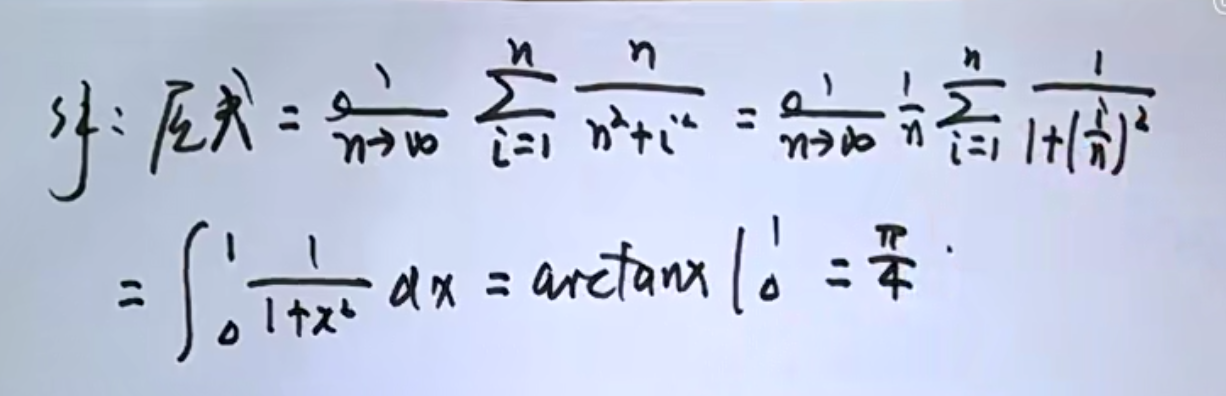 解：原式 = lim_{n→∞} ∑_{i=1}^{n} \frac{n}{n²+i²} = lim_{n→∞} \frac{1}{n} ∑_{i=1}^{n} \frac{1}{1+(\frac{i}{n})²}
= ∫_0^1 \frac{1}{1+x²} dx = arctanx |_0^1 = \frac{π}{4}.